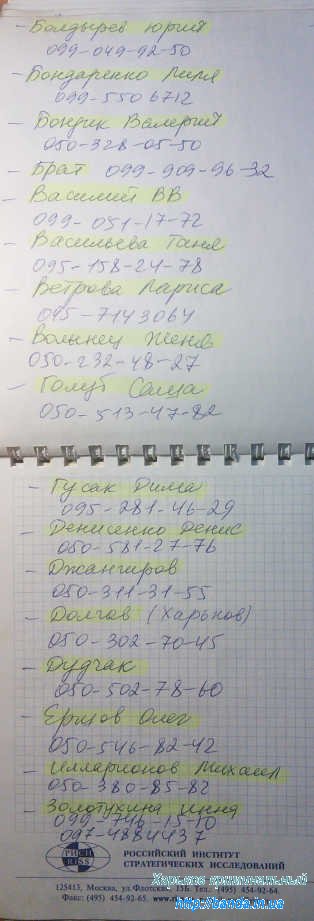 - Болдырев Юрий
099-049-92-50
- Бондаренко Лиля
099-550 6712
- Бондик Валерий
050-328-05-50
- Брат 099-909-96-32
- Василий ВВ
099-051-17-72
- Васильева Таня
095-158-24-78
- Ветрова Лариса
095-7143064
- Волынец Женя
050-232-48-27
- Голуб Саша
050-513-47-82
- Гусак Дима
095-281-46-29
- Денисенко Денис
050-581-27-76
- Джангиров
050-311-31-55
- Долгов (Харьков)
050-302-70-45
- Дудчак
050-502-78-60
- Ершов Олег
050-546-82-42
- Илларионов Михаил
050-380-85-82
- Золотухина Инна
099-746-15-10
097-4884437
РИСИ
RISS
РОССИЙСКИЙ ИНСТИТУТ
СТРАТЕГИЧЕСКИХ ИССЛЕДОВАНИЙ
125413, Москва, ул.Флотская, 15б. Тел.: (495) 454-92-64
Факс: (495) 454-92-65.